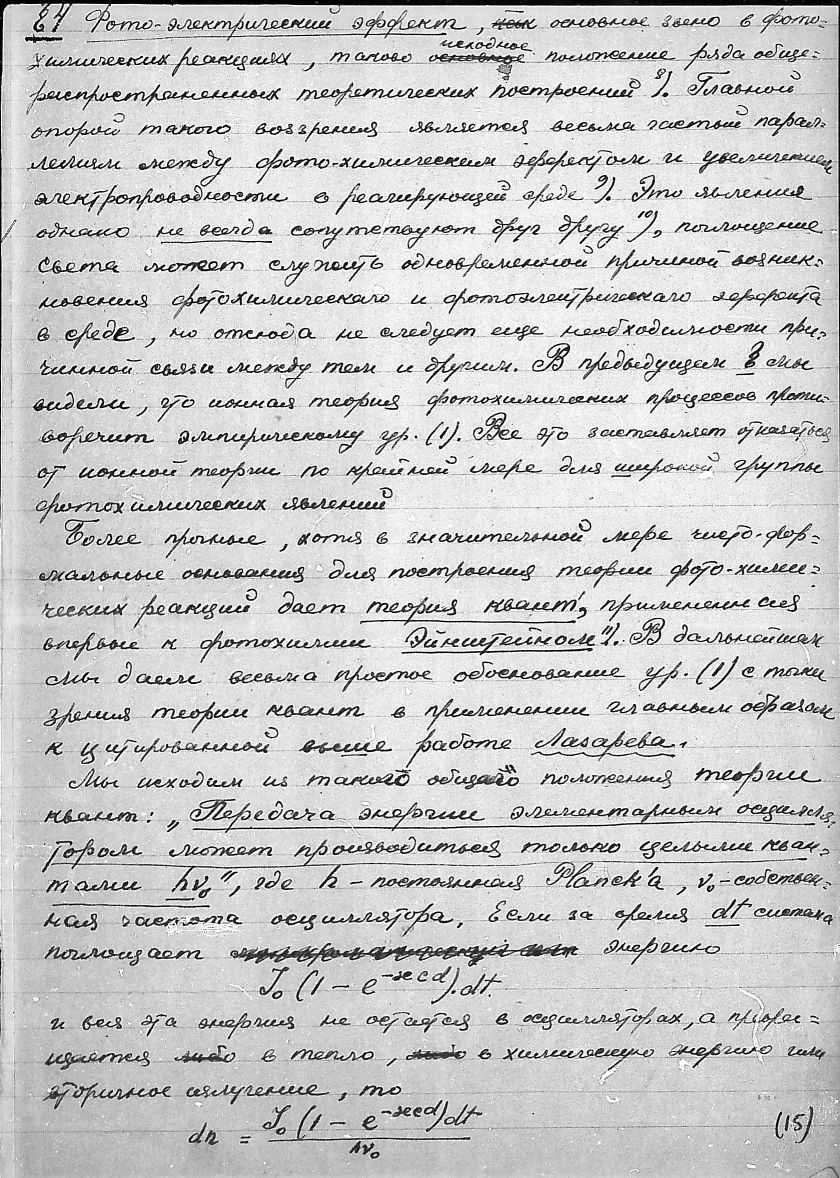 §4 Фото-электрический эффект, как основное звено в фото-
химических реакциях, таково основное исходное положение ряда обще-
распространенных теоретических построений 8). Главной
опорой такого воззрения является весьма частый парал-
лелизм между фото-химическим эффектом и увеличением
электропроводности в реагирующей среде 9). Это явления
однако не всегда сопутствуют друг другу 10), поглощение
света может служить одновременной причиной возник-
новения фотохимического и фотоэлектрического эффекта
в среде, но отсюда не следует еще необходимости при-
чинной связи между тем и другим. В предыдущем § мы
видели, что ионная теория фотохимических процессов проти-
воречит эмпирическому ур. (1). Все это заставляет отказаться
от ионной теории по крайней мере для широкой группы
фотохимических явлений
Более прочные, хотя в значительной мере чисто-фор-
мальные основания для построения теории фото-хими-
ческих реакций дает теория квант, примененная
впервые к фотохимии Эйнштейном 11). В дальнейшем
мы даем весьма простое обоснование ур. (1) с точки
зрения теории квант в применении главным образом
к цитированной выше работе Лазарева.
Мы исходим из такого общего положения теории
квант: „Передача энергии элементарным осцилля-
тором может производиться только целыми кван-
тами hν₀", где h – постоянная Planck'а, ν₀ – собствен-
ная частота осциллятора. Если за время dt система
поглощает энергию
J₀ (1 – e^{-κcd}).dt.
и вся эта энергия не остается в осцилляторах, а превра-
щается либо в тепло, либо в химическую энергию или
вторичное излучение, то
dn = J₀ (1 – e^{-κcd})dt / hν₀ (15)